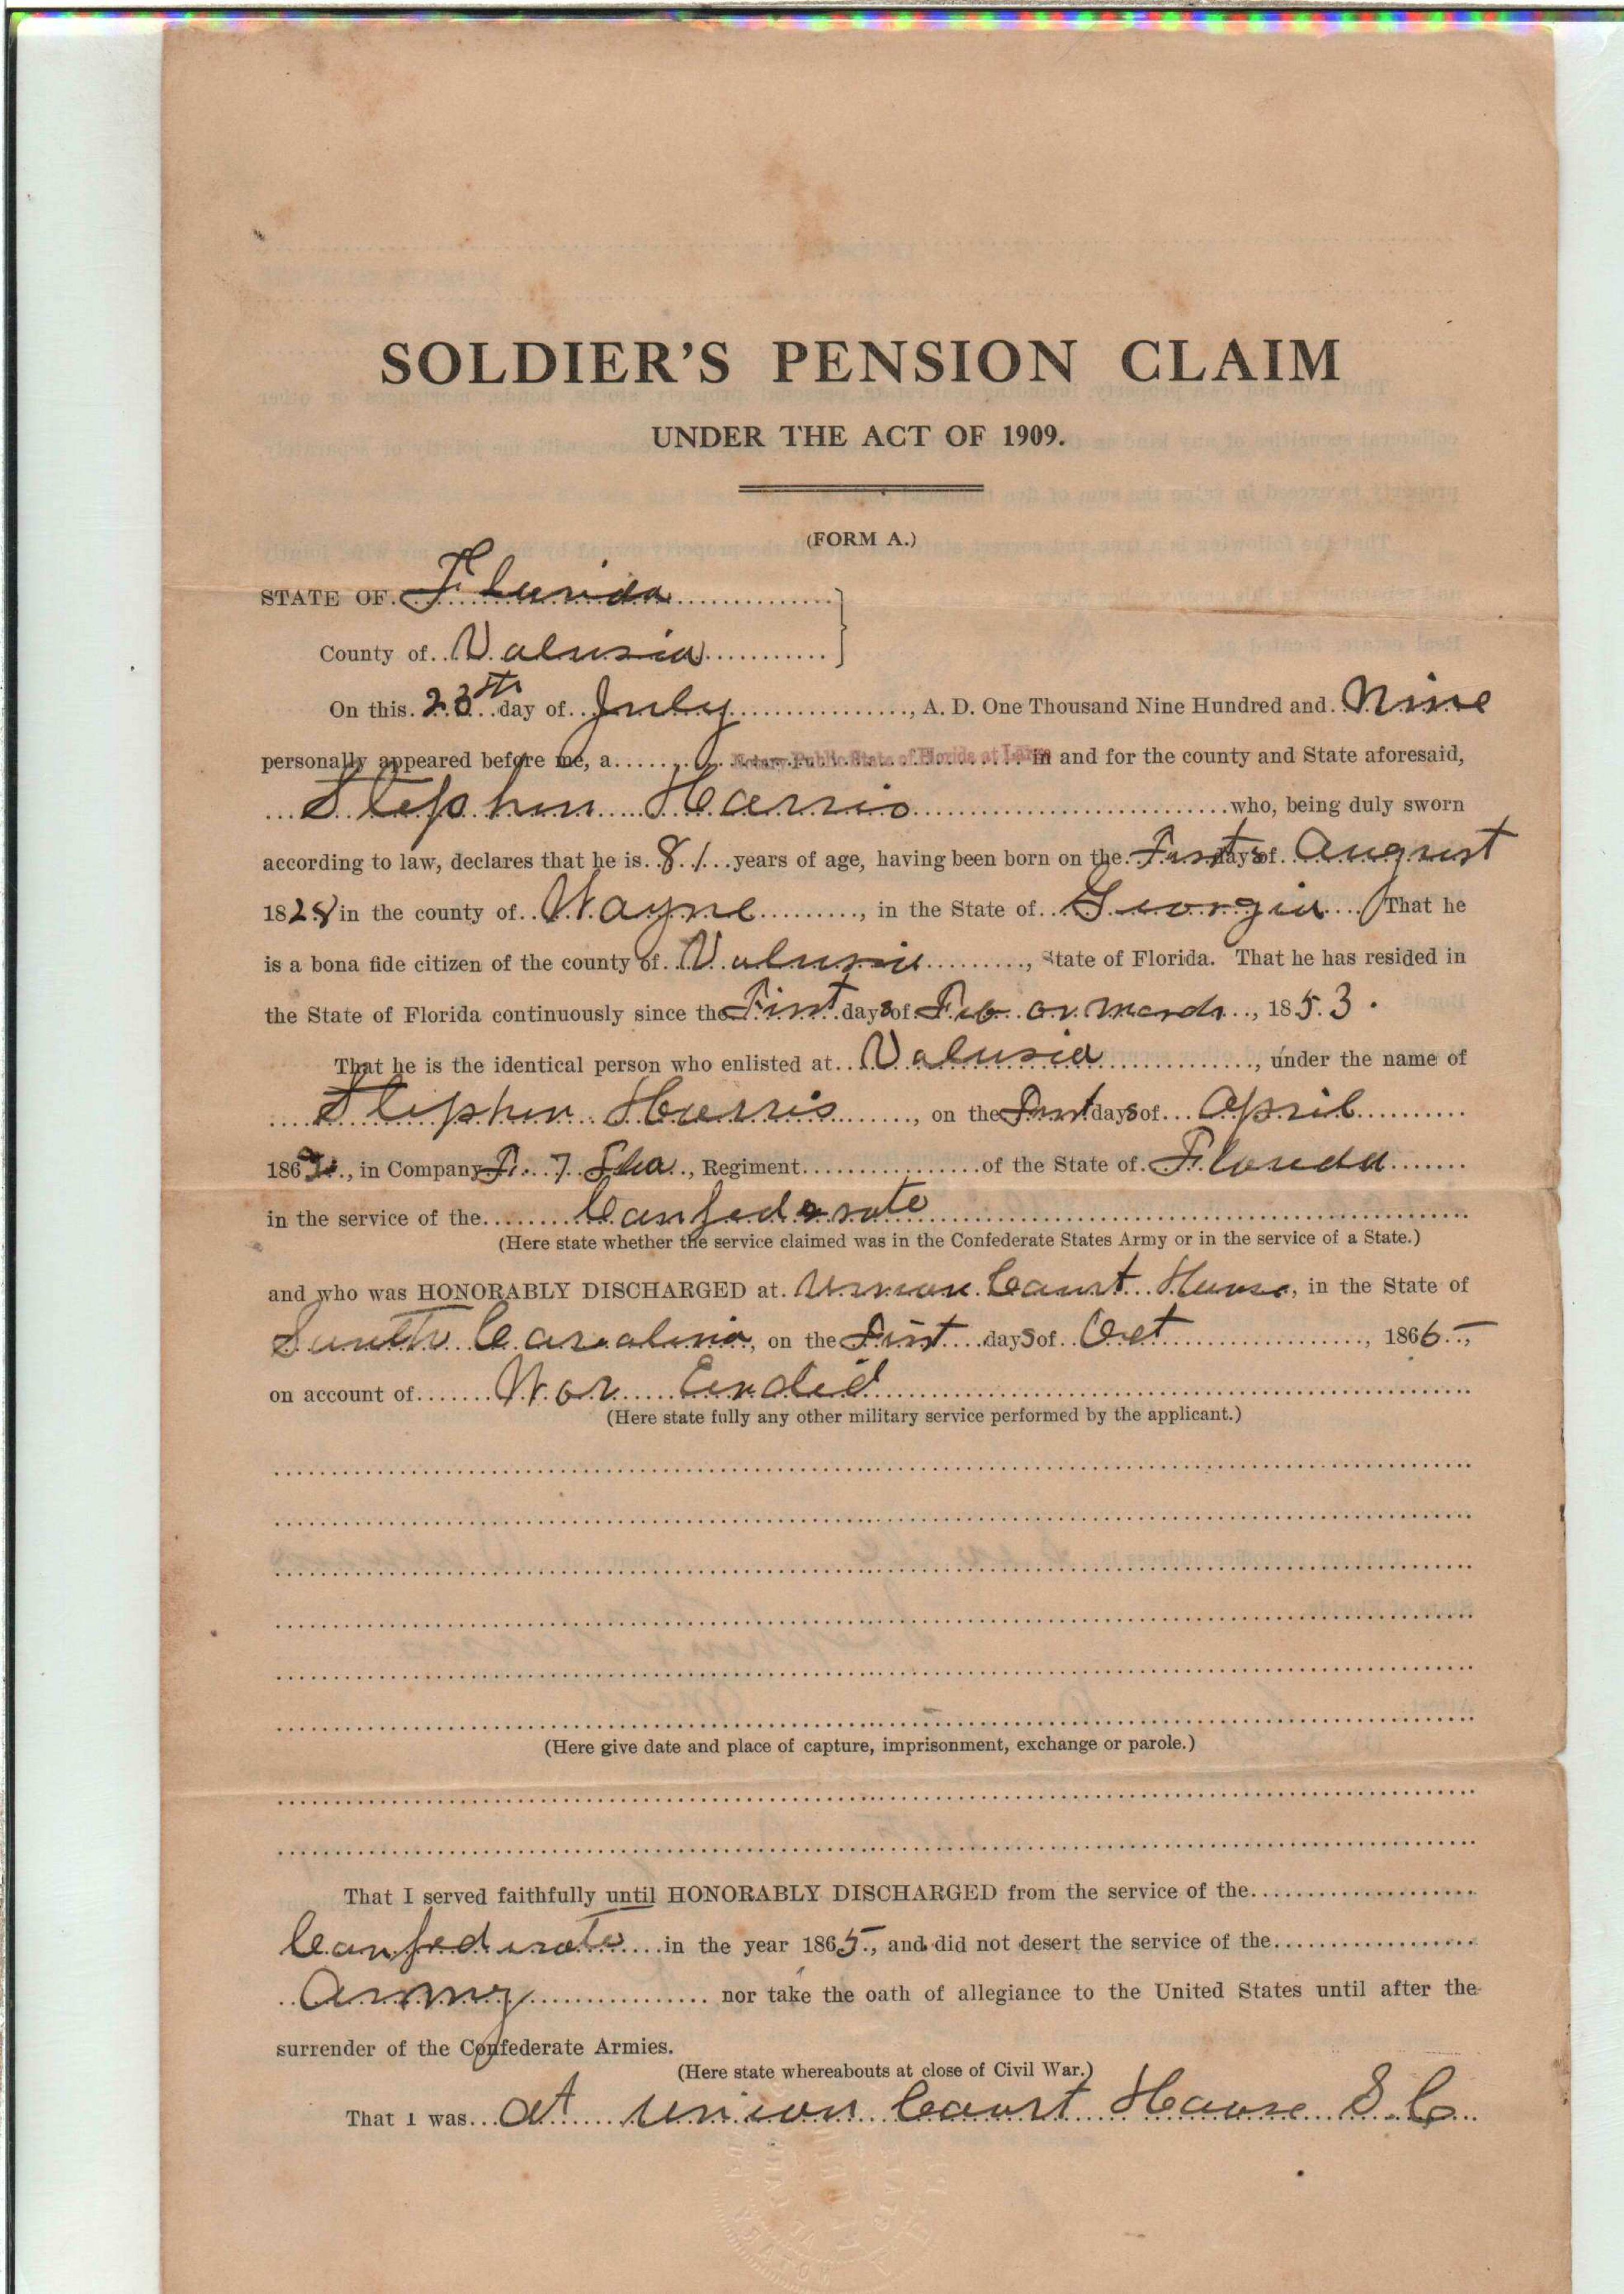 SOLDIER'S PENSION CLAIM
UNDER THE ACT OF 1909.
(FORM A.)
STATE OF Florida
County of Volusia
On this 23th day of July, A. D. One Thousand Nine Hundred and Nine
personally appeared before me, a Notary Public State of Florida at Large in and for the county and State aforesaid,
Stephen Harris who, being duly sworn
according to law, declares that he is 81 years of age, having been born on the First days of August
1828 in the county of Wayne, in the State of Georgia That he
is a bona fide citizen of the county of Volusia, State of Florida. That he has resided in
the State of Florida continuously since the First days of Feb or March, 1853.
That he is the identical person who enlisted at Volusia, under the name of
Stephen Harris, on the First days of April
186, in Company 7 Fla, Regiment of the State of Florida
in the service of the Confederate
(Here state whether the service claimed was in the Confederate States Army or in the service of a State.)
and who was HONORABLY DISCHARGED at Union Court House, in the State of
South Carolina, on the First days of Oct, 1865,
on account of War Ended
(Here state fully any other military service performed by the applicant.)
(Here give date and place of capture, imprisonment, exchange or parole.)
That I served faithfully until HONORABLY DISCHARGED from the service of the
Confederate in the year 1865, and did not desert the service of the
Army nor take the oath of allegiance to the United States until after the
surrender of the Confederate Armies.
(Here state whereabouts at close of Civil War.)
That I was at Union Court House S.C.